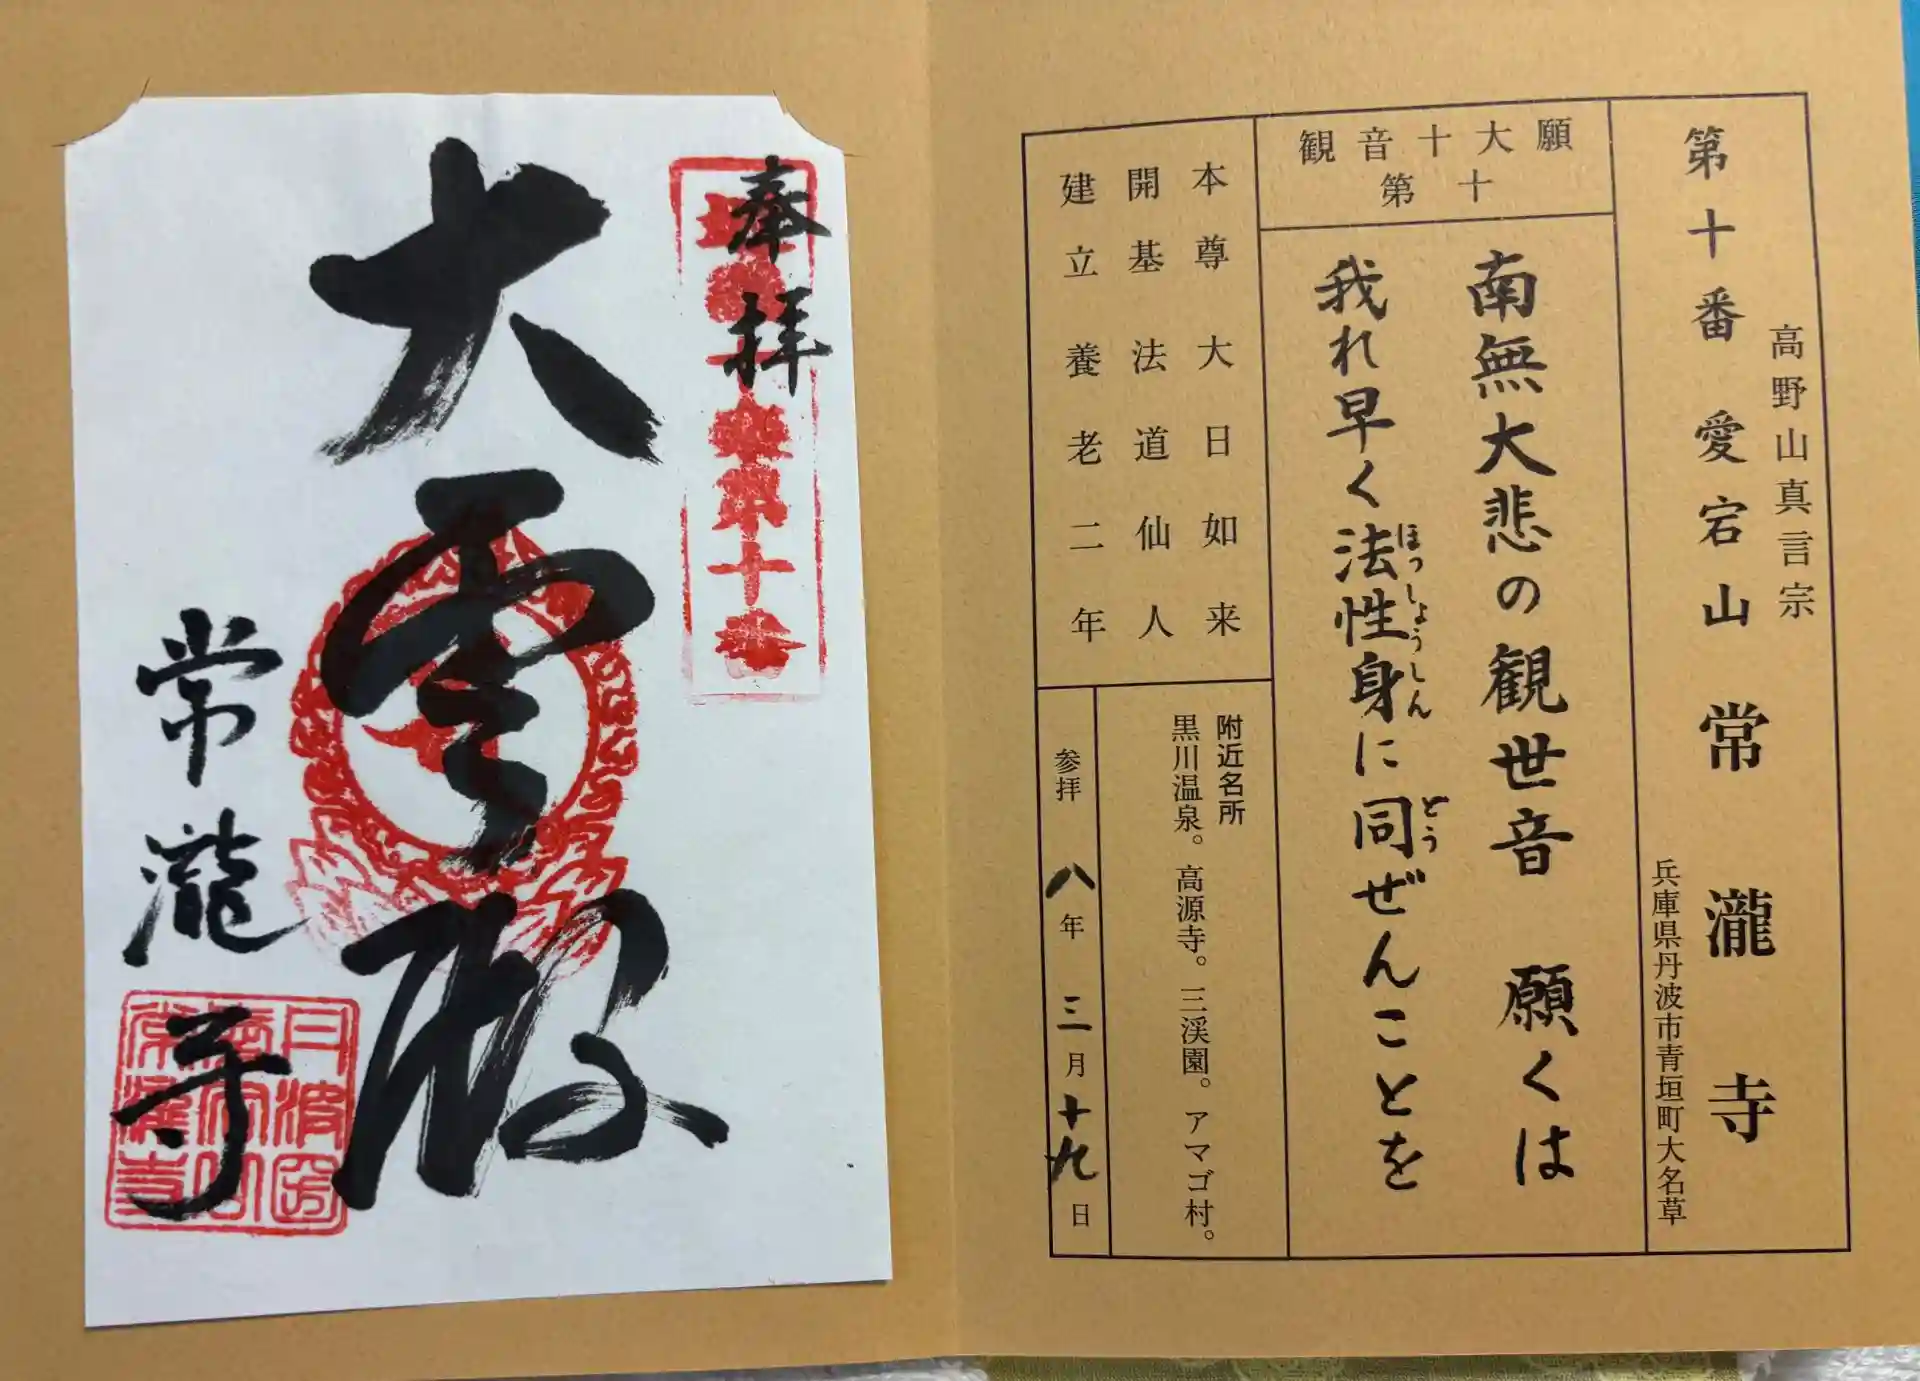 高野山真言宗
第十番 愛宕山 常瀧寺
兵庫県丹波市青垣町大名草
観音十大願
第十
南無大悲の観世音 願くは
我れ早く法性身に同ぜんことを
ほっしょうしん
どう
本尊 大日如来
開基 法道仙人
建立 養老二年
附近名所
黒川温泉。高源寺。三渓園。アマゴ村。
参拝 八年 三月 十九日
奉拝
第十番
大雲殿
常瀧寺
丹波国
愛宕山
常瀧寺